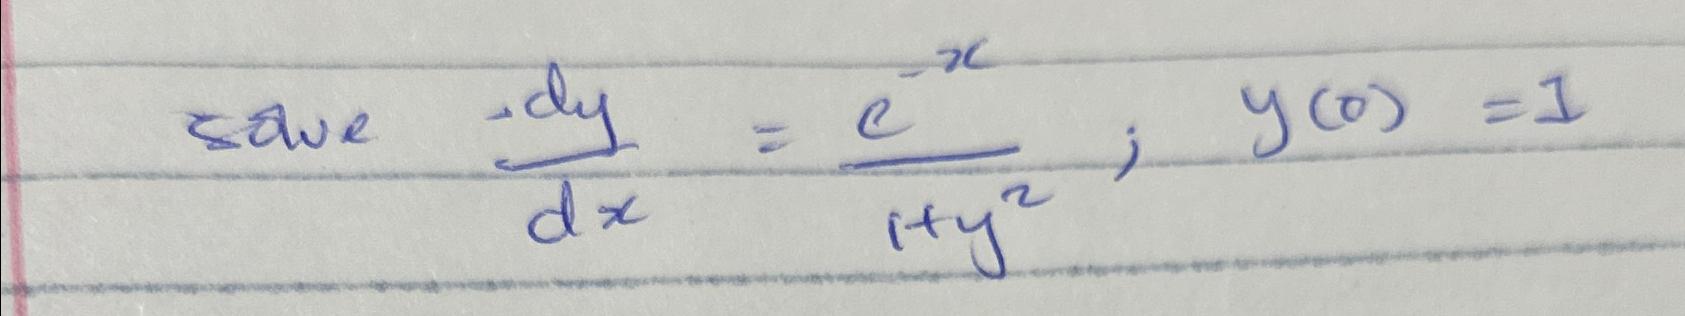 solve dy/dx = e^-x / 1+y^2 ; y(0) = 1